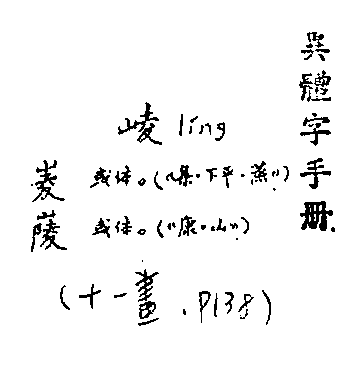 異體字手册
崚 líng
䔖 或体。(《集·下平·蒸》)
蔆 或体。(《康·山》)
(十一畫.P138)